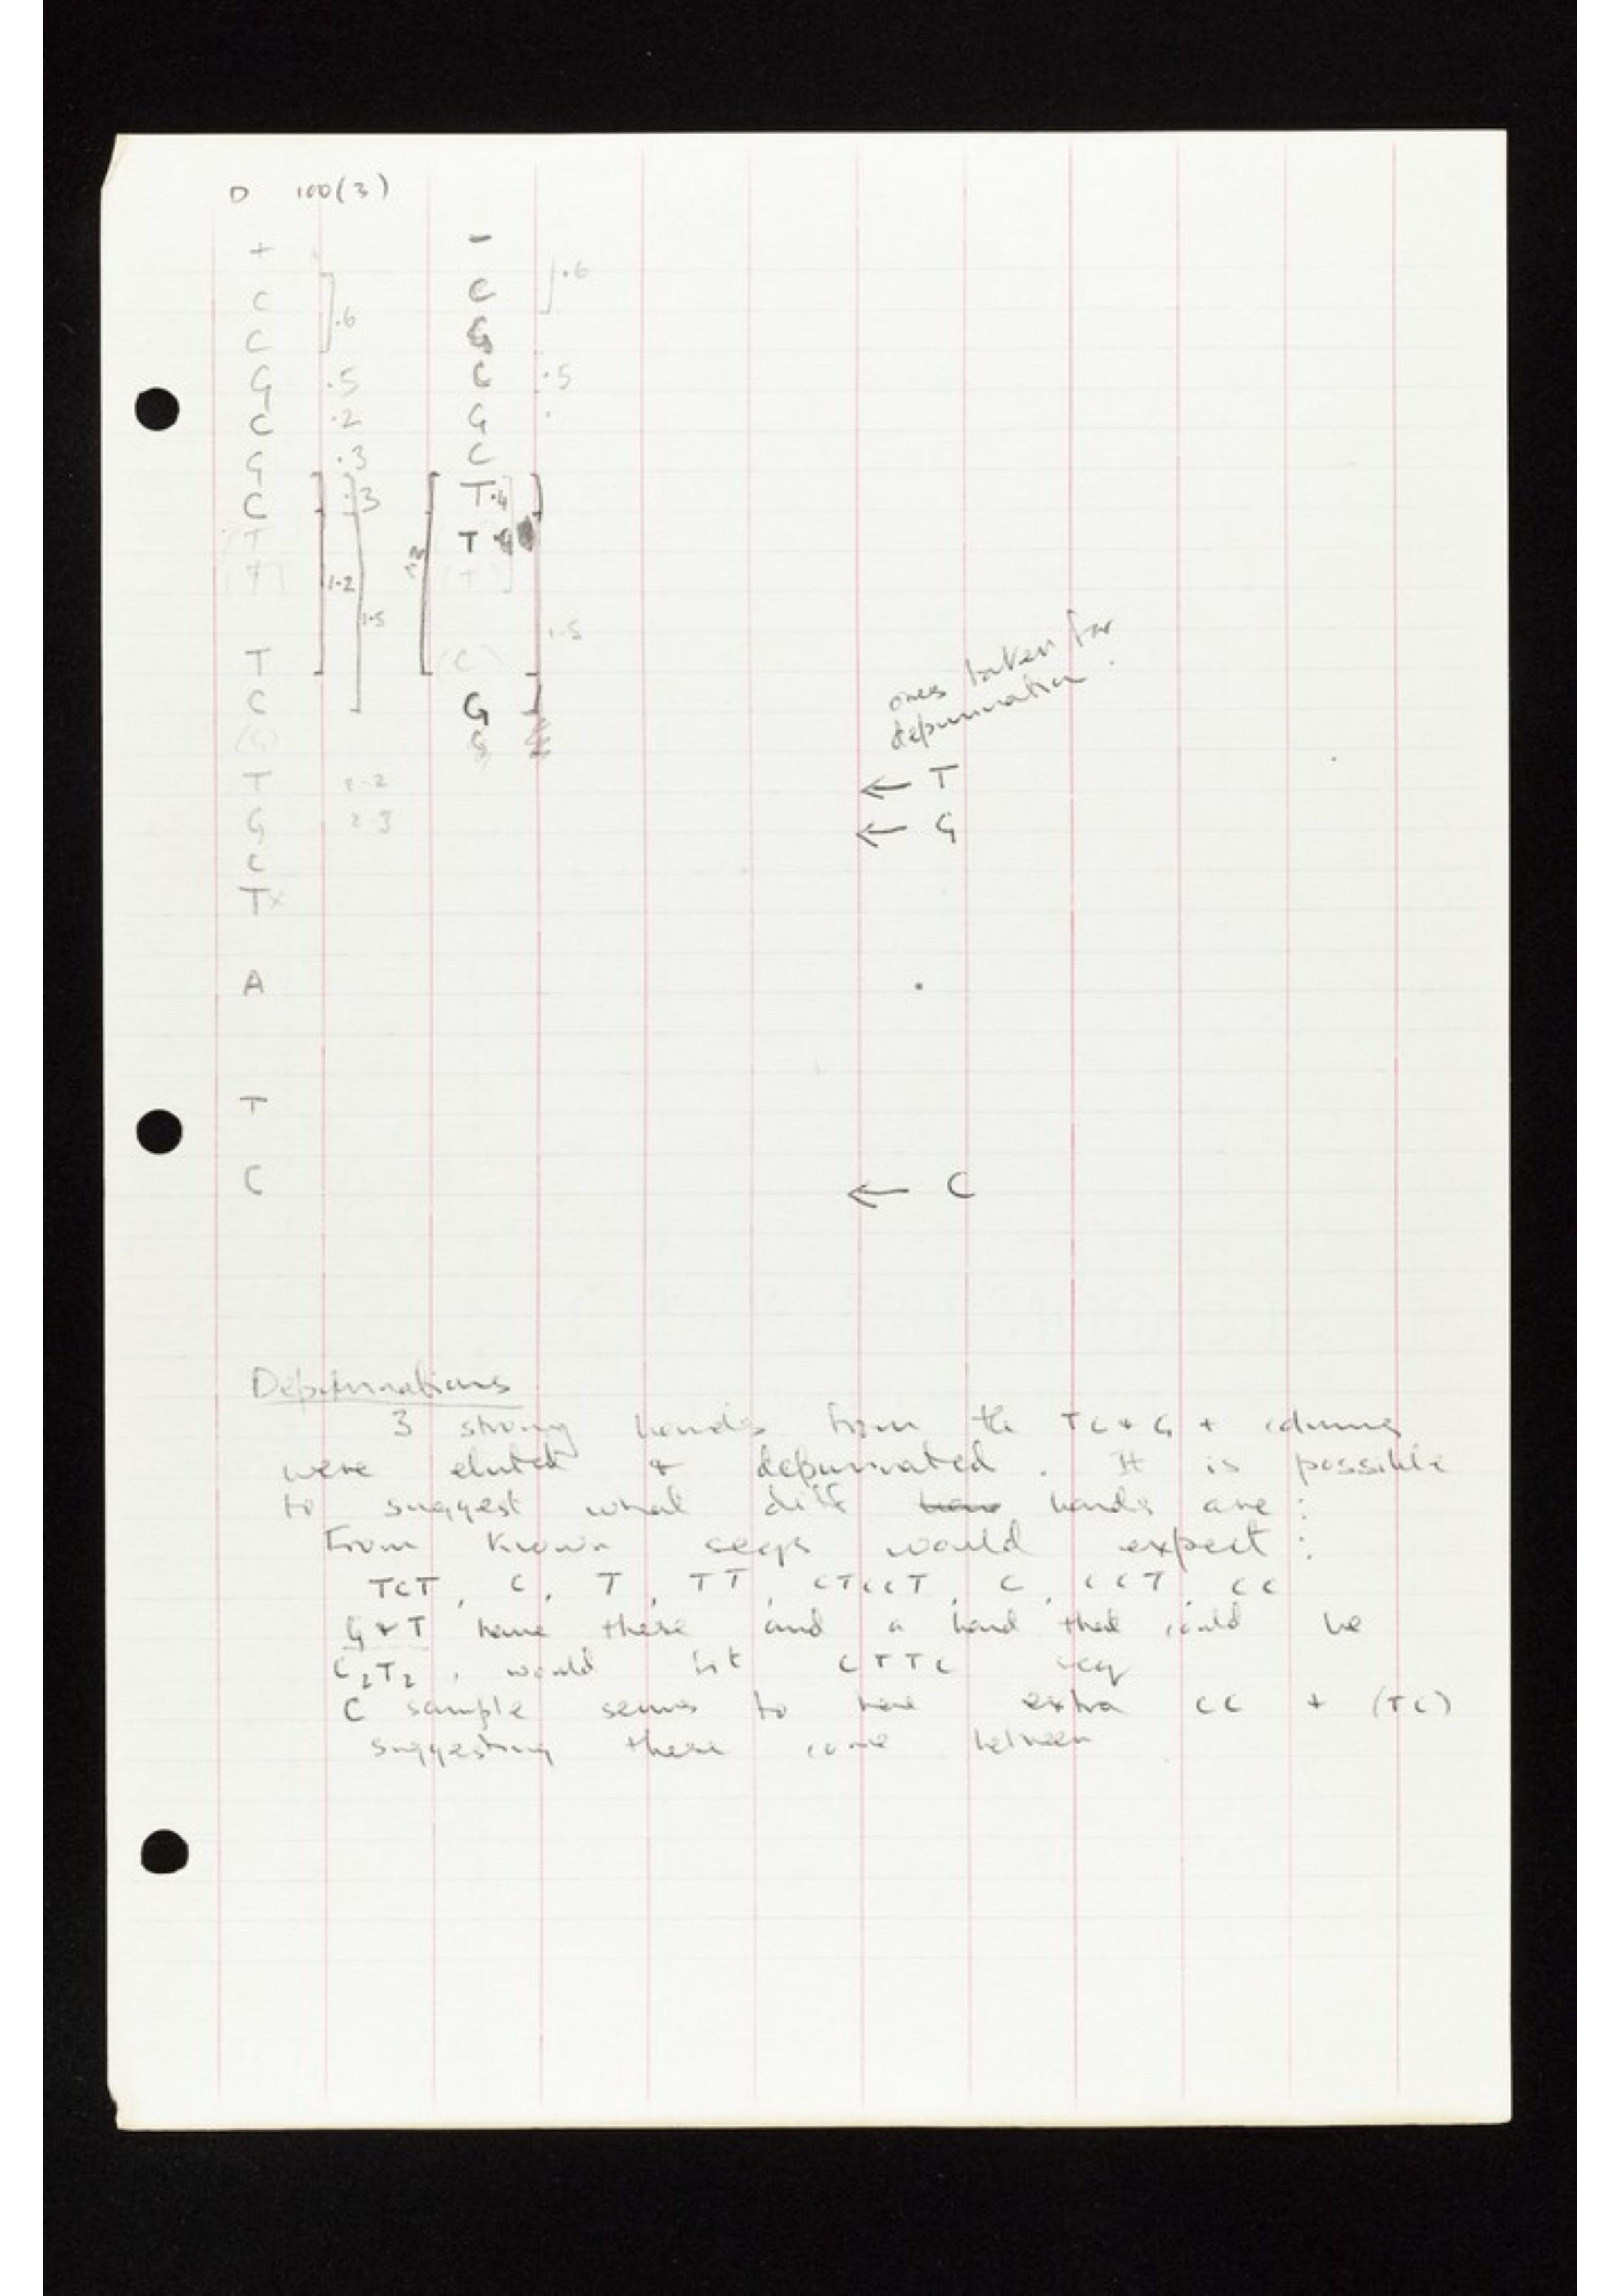 D 100(3)
+ -
C C ·6
C ·6 G
G ·5 C ·5
C ·2 G
G ·3 C
C ·3 T ·4
(T T
(T) 1·2 (T)
1·5 1·5
T (C)
ones taken for
depurination.
C G
(G) G
T 2·2 ← T
G 2·3 ← G
C
T x
A
T
C ← C
Depurinations
3 strong bands from the T C & G + columns
were eluted & depurinated. It is possible
to suggest what diff bands are:
From known seqs would expect:
TCT, C, T, TT, CTCCT, C, CCT, CC
G & T have these and a band that could be
C2T2, would fit CTTC seq
C sample seems to have extra CC + (TC)
suggesting these come between